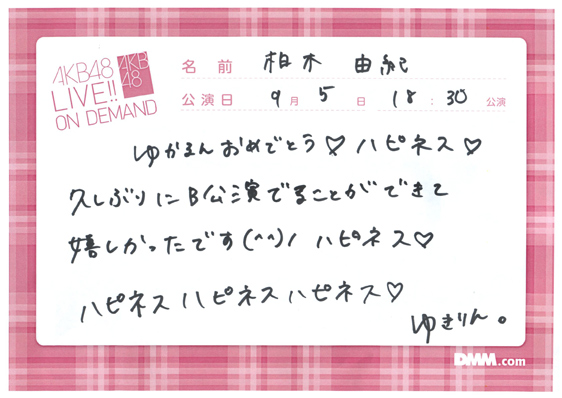 AKB48
LIVE!!
ON DEMAND
AKB
48
名前 柏木 由紀
公演日 9月 5日 18:30 公演
ゆかるんおめでとう♡ハピネス♡
久しぶりにB公演でることができて
嬉しかったです(^^)/ ハピネス♡
ハピネスハピネスハピネス♡
ゆきりん。
DMM.com